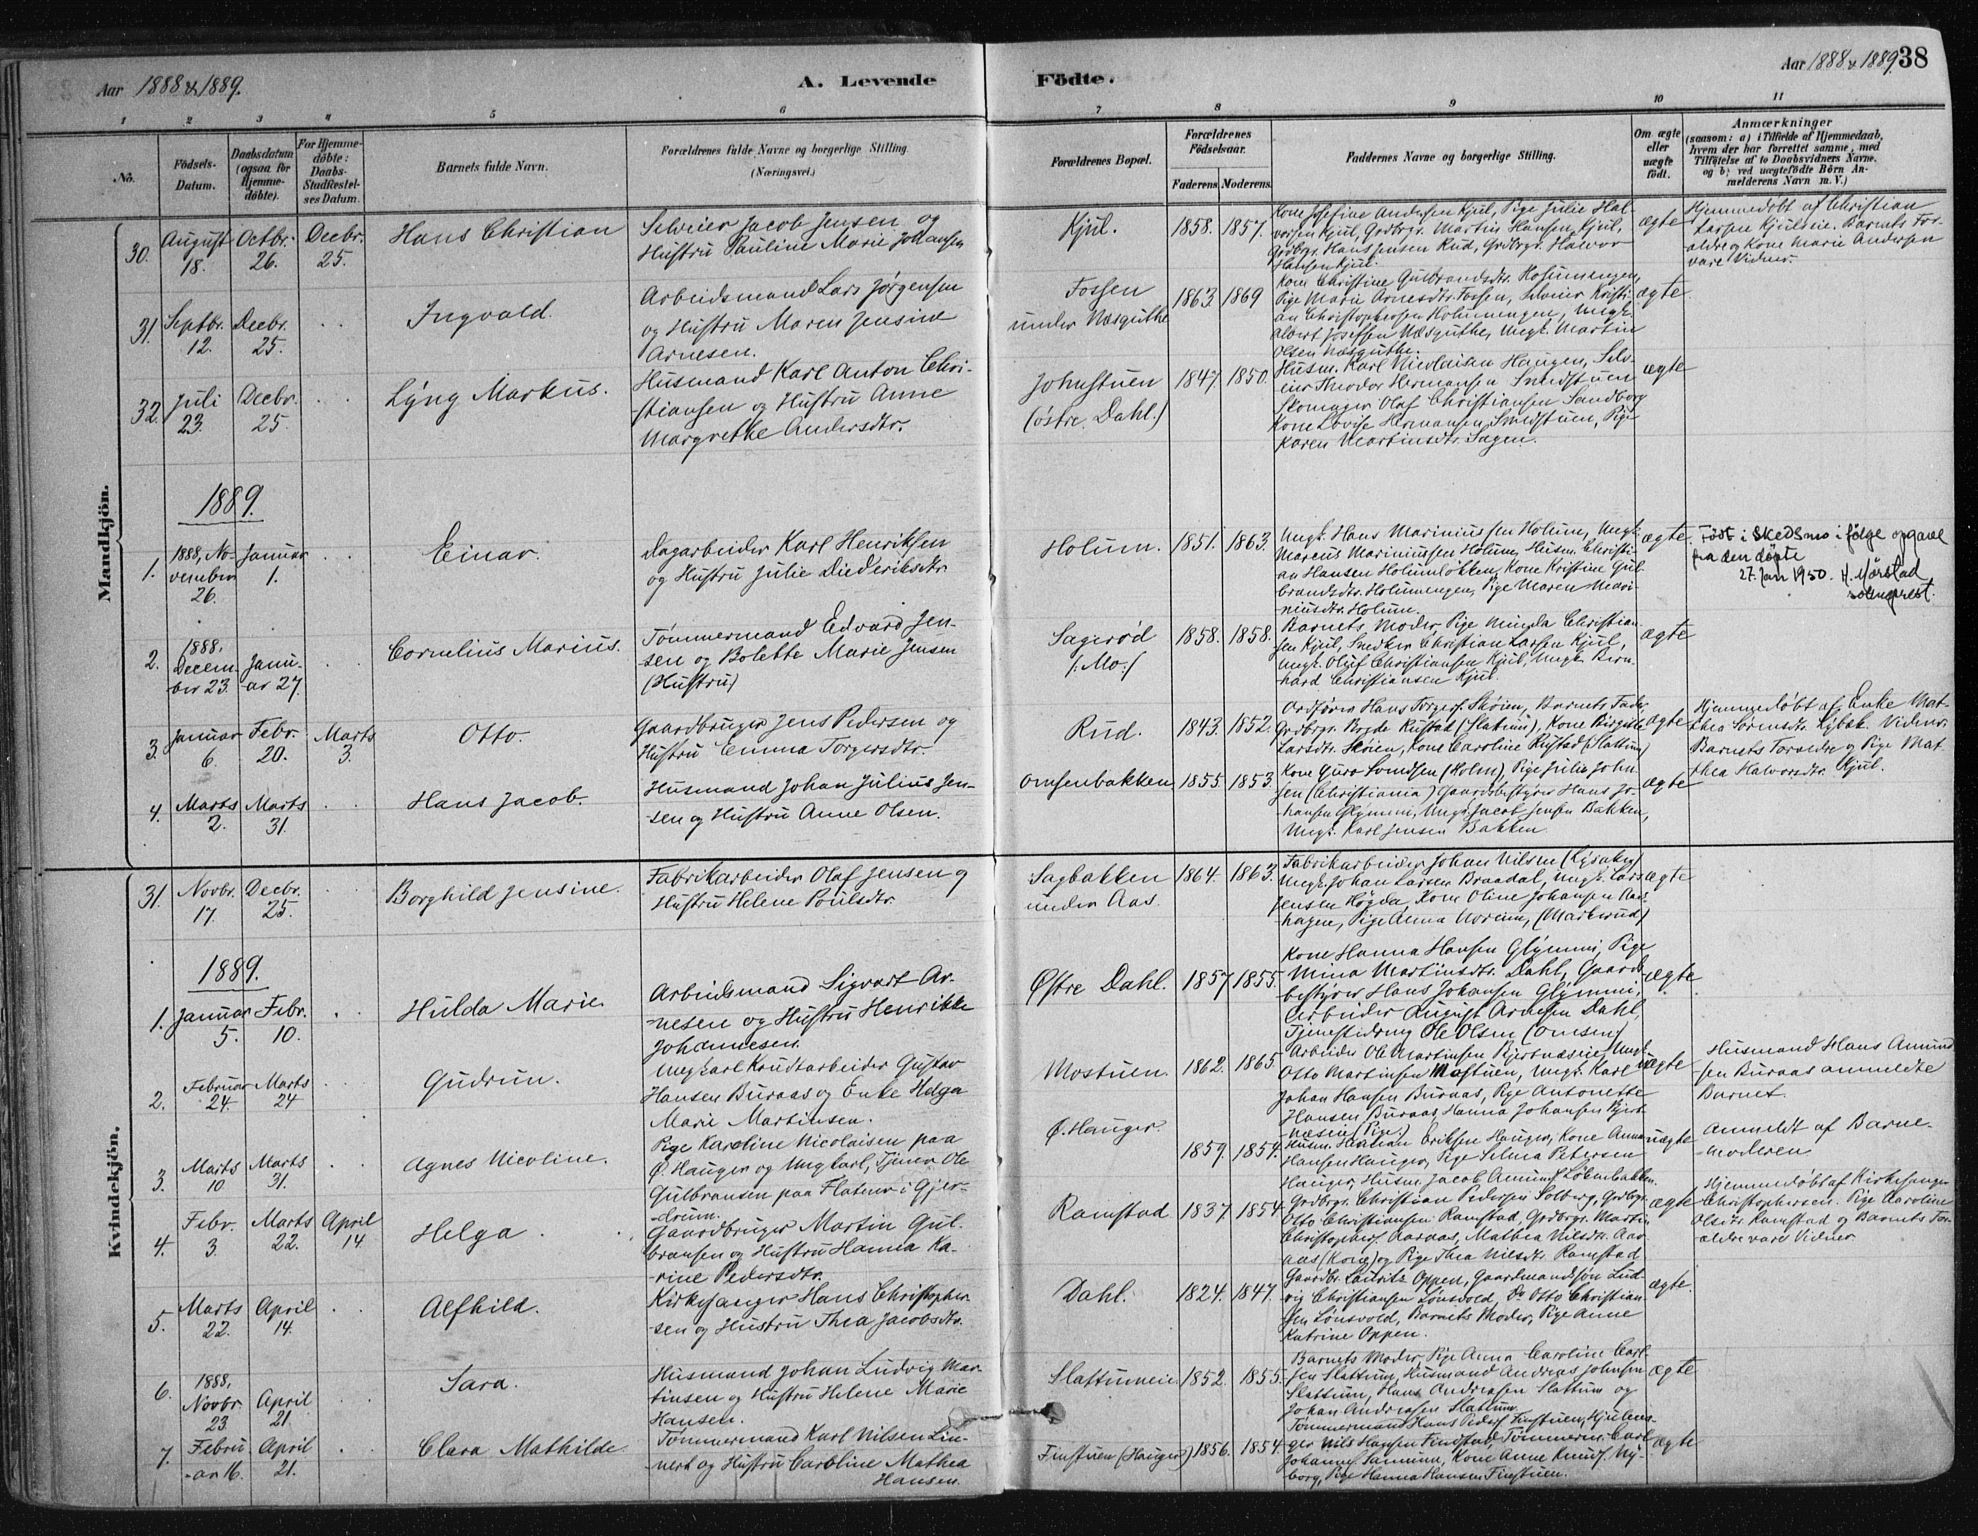 Aar 1888 & 1889.
A. Levende
Fødte.
Aar 1888 & 1889. 38
1 2 3 4 5 6 7 8 9 10 11
No.
Fødsels-
Datum.
Daabsdatum
(ogsaa for
Hjemme-
døbte).
For Hjemme-
døbte:
Daabs-
Stadfæstel-
ses Datum.
Barnets fulde Navn.
Forældrenes fulde Navne og borgerlige Stilling.
(Næringsvei.)
Forældrenes Bopæl.
Forældrenes
Fødselsaar.
Faderens. Moderens.
Faddernes Navne og borgerlige Stilling.
Om ægte
eller
uægte
født.
Anmærkninger
(saasom: a) i Tilfælde af Hjemmedaab,
hvem der har forrettet samme, med
Tilføielse af to Daabsvidners Navne.
og b; ved uægtefødte Børn An-
mælderens Navn m. V.)
Mandkjön.
30. August 18. Octbr. 26. Decbr. 25.
Hans Christian
Selveier Jacob Jensen og
Hustru Pauline Marie Johansen
Kjul. 1858. 1857.
Kone Josefine Andersen Kjul, Pige Julie Hal-
vorsen Kjul, Grdbrgr. Martin Hansen Kjul,
Grdbrgr. Hans Jensen Rud, Grdbrgr. Halvor
Hansen Kjul.
ægte
Hjemmedøbt af Christian
Larsen Kjulseie. Barnets For-
ældre og Kone Marie Andersen
vare Vidner.
31. Septbr. 12. Decbr. 25.
Ingvald.
Arbeidsmand Lars Jørgensen
og Hustru Maren Jensine
Arnesen.
Fossen
under Næsguthe
1863. 1869
Kone Christine Gulbrandsdtr. Holumengen,
Pige Marie Arnesdtr. Fossen, Selveier Kristi-
an Christophersen Holumengen, Ungk.
Albert Josefsen Næsguthe, Ungk. Martin
Olsen Næsguthe.
ægte
32. Juli 23 Decbr. 25.
Lyng Markus.
Husmand Karl Anton Chri-
stiansen og Hustru Anne
Margrethe Andersdtr.
Johnstuen
(østre Dahl.)
1847. 1850.
Husm. Karl Nicolaisen Haugen, Selv-
eier Theodor Hermansen Smedstuen
Skomager Olaf Christiansen Sandborg
Kone Lovise Hermansen Smedstuen, Pige
Karen Martinsdtr. Sagen.
ægte
1889.
1. 1888, No-
vember
26. Januar
1.
Einar.
Dagarbeider Karl Henriksen
og Hustru Julie Diederiksdtr.
Holum. 1851. 1863.
Ungk. Hans Mariniussen Holum, Ungk.
Marcus Mariniussen Holum, Husm. Christi-
an Hansen Holumløkken, Kone Kristine Gul-
brandsdtr. Holumengen, Pige Maren Mari-
niusdtr. Holum.
ægte.
Født i Skedsmo i følge opgave
fra den døpte
27. Jan 1950. H. Mørstad
sokneprest.
2. 1888,
Decem-
ber 23. Janu-
ar 27.
Cornelius Marius.
Tømmermand Edvard Jen-
sen og Bolette Marie Jensen
(Hustru)
Sagerød
/: Mo./
1858. 1858.
Barnets Moder, Pige Minda Christian-
sen Kjul, Snedker Christian Larsen Kjul,
Ungk. Oluf Christiansen Kjul, Ungk. Bern-
hard Christiansen Kjul.
ægte
3. Januar 6. Febr. 20. Marts 3.
Otto.
Gaardbruger Jens Pedersen og
Hustru Emma Torgersdtr.
Rud. 1843. 1852.
Ordfører Hans Torgers. Skøien, Barnets Fader,
Grdbrgr. Bogde Rustad (Slattum), Kone Birgitte
Larsdtr. Skøien, Kone Caroline Rustad (Slattum)
ægte
Hjemmedøbt af Enke Mat-
thea Sørensdtr. Nybæk. Vidner.
Barnets Forældre og Pige Mat-
thea Halvorsdtr. Kjul.
4. Marts 2. Marts 31.
Hans Jacob.
Husmand Johan Julius Jen-
sen og Hustru Anne Olsen.
Omsenbakken 1855. 1853.
Kone Guro Svendsen (Holm), Pige Julie John-
sen (Christiania) Gaardsbestyrer Hans Jo-
hansen Glømmi, Ungk. Jacob Jensen Bakken,
Ungk. Karl Jensen Bakken.
ægte
Kvindekjön.
31. Novbr. 17. Decbr. 25.
Borghild Jensine.
Fabrikarbeider Olaf Jensen og
Hustru Helene Poulsdtr.
Sagbakken
under Aas.
1864. 1863.
Fabrikarbeider Johan Nilsen
Ungk. Johan Larsen Braadal, Ungk. Lars
Jensen Høgda, Kone Oline Johansen Aas-
hagen, Pige Anna Noreim, (Markerud)
ægte
1889.
1. Januar 5. Febr. 10.
Hulda Marie
Arbeidsmand Sigvart Ar-
nesen og Hustru Henrikke
Johannesen.
Østre Dahl. 1857 1855.
Kone Hanna Hansen Glømmi, Pige
Mina Martinsdtr. Dahl, Gaards-
bestyrer Hans Johansen Glømmi,
Arbeider August Arnesen Dahl,
Tjenestedreng Ole Olsen (Omsen)
ægte
2. Februar 24. Marts 24
Gudrun.
Ungkarl Krudtarbeider Gustav
Hansen Buraas og Enke Helga
Marie Martinsen.
Mostuen. 1862. 1865.
Arbeider Ole Martinsen Bjertnæseie, Ungk.
Otto Martinsen Mostuen, Ungk. Karl
Johan Hansen Buraas, Pige Antonette
Hansen Buraas, Hanna Johansen Bjert-
næseie (Pige.)
uægte
Husmand Hans Amund-
sen Buraas anmeldte
Barnet.
3. Marts 10 Marts 31.
Agnes Nicoline.
Pige Karoline Nicolaisen paa
Ø. Hauger og Ungkarl, Tjener Ole
Gulbransen paa Flatner i Gjer-
drum.
Ø. Hauger. 1859. 1854.
Husm. Eriksen Hauger, Kone Anna
Hansen Hauger, Pige Selma Petersen
Hauger, Husm. Jacob Amunds. Løkenbakken.
uægte
Anmeldt af Barne-
moderen
4. Febr. 3. Marts 22. April 14.
Helga
Gaardbruger Martin Gul-
bransen og Hustru Hanna Ka-
rine Pedersdtr.
Ramstad 1837. 1854.
Grdbrgr. Christian Pedersen Solberg, Grdbrgr.
Otto Christiansen Ramstad, Grdbrgr. Martin
Christophers. Aaraas, Mathea Nilsdtr. Aar-
aas (Kone) og Pige Thea Nilsdtr. Ramstad
ægte
Hjemmedøbt af Kirkesanger
Christophersen. Pige Karoline
Olsdtr. Ramstad og Barnets For-
ældre vare Vidner.
5. Marts 22. April 14.
Alfhild.
Kirkesanger Hans Christopher-
sen og Hustru Thea Jacobsdtr.
Dahl. 1824. 1847.
Gaardbr. Lauritz Oppen, Gaardmandssøn Lud-
vig Christiansen Lønsvold, Do Otto Christian-
sen Lønsvold, Barnets Moder, Pige Anne
Katrine Oppen.
ægte.
6. 1888,
Novbr.
23 April
21.
Sara.
Husmand Johan Ludvig Mar-
tinsen og Hustru Helene Marie
Hansen.
Slattumeie 1852. 1855.
Barnets Moder, Pige Anna Caroline Carl-
sen Slattum, Husmand Andreas Johnsen
Slattum, Hans Andreasen Slattum og
Johan Andreasen Slattum.
ægte
7. Febru-
ar 16. April
21.
Clara Mathilde
Tømmermand Karl Nilsen Lin-
nert og Hustru Caroline Mathea
Hansen.
Finstuen (Hauger) 1856. 1854.
Tømmermand Hans Peders. Finstuen, Hjulens-
ger Nils Hansen Finstad, Tømmerm. Carl
Johannes. Sannum, Kone Anne Knuds. Ny-
borg, Pige Hanna Hansen Finstuen.
ægte